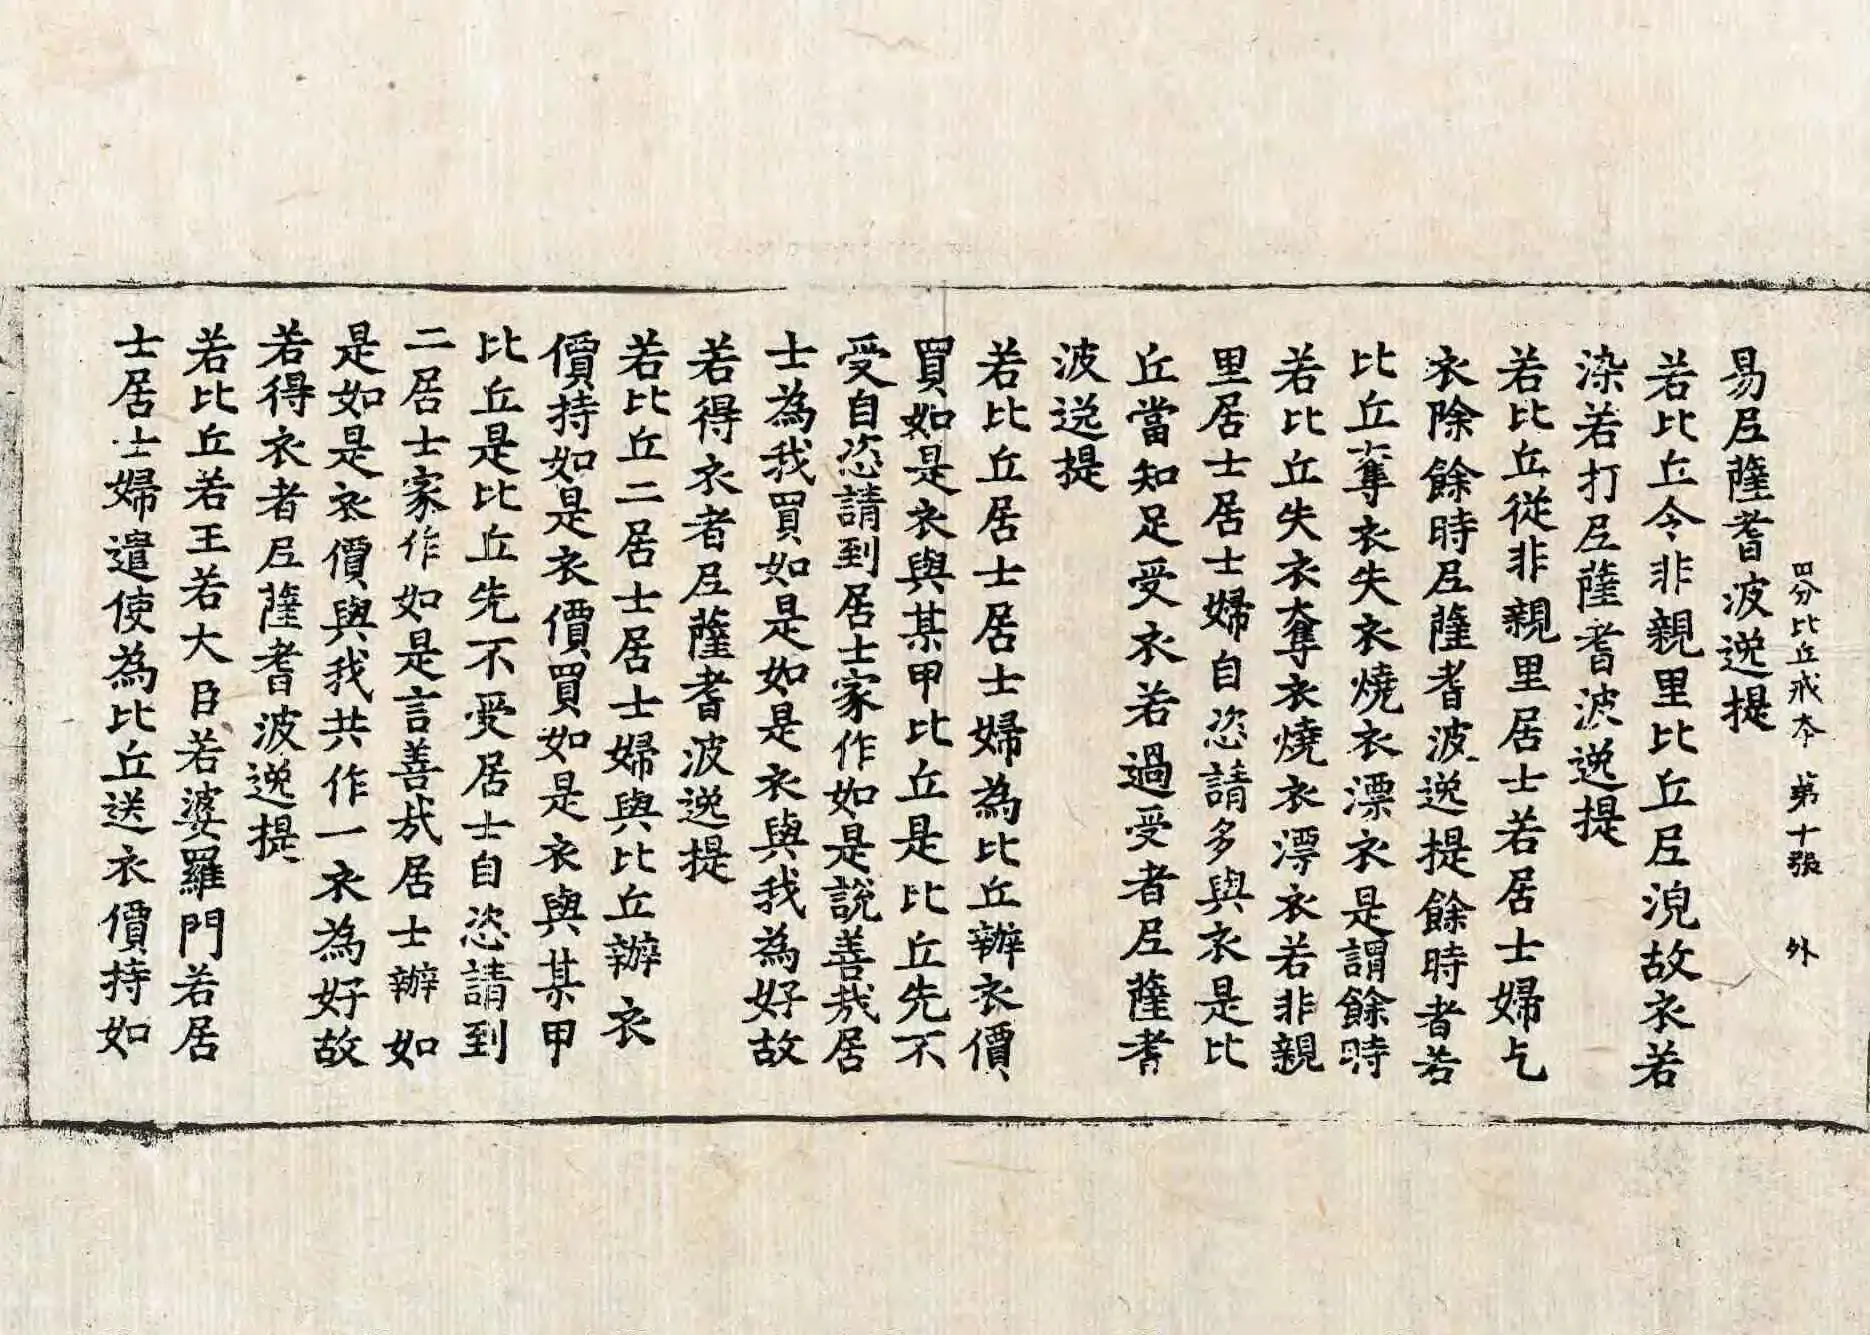 四分比丘戒本 第十張 外
易尼薩耆波逸提
若比丘令非親里比丘尼浣故衣若
染若打尼薩耆波逸提
若比丘從非親里居士若居士婦乞
衣除餘時尼薩耆波逸提餘時者若
比丘奪衣失衣燒衣漂衣是謂餘時
若比丘失衣奪衣燒衣漂衣若非親
里居士居士婦自恣請多與衣是比
丘當知足受衣若過受者尼薩耆
波逸提
若比丘居士居士婦為比丘辦衣價
買如是衣與某甲比丘是比丘先不
受自恣請到居士家作如是說善哉居
士為我買如是如是衣與我為好故
若得衣者尼薩耆波逸提
若比丘二居士居士婦與比丘辦衣
價持如是衣價買如是衣與某甲
比丘是比丘先不受居士自恣請到
二居士家作如是言善哉居士辦如
是如是衣價與我共作一衣為好故
若得衣者尼薩耆波逸提
若比丘若王若大臣若婆羅門若居
士居士婦遣使為比丘送衣價持如